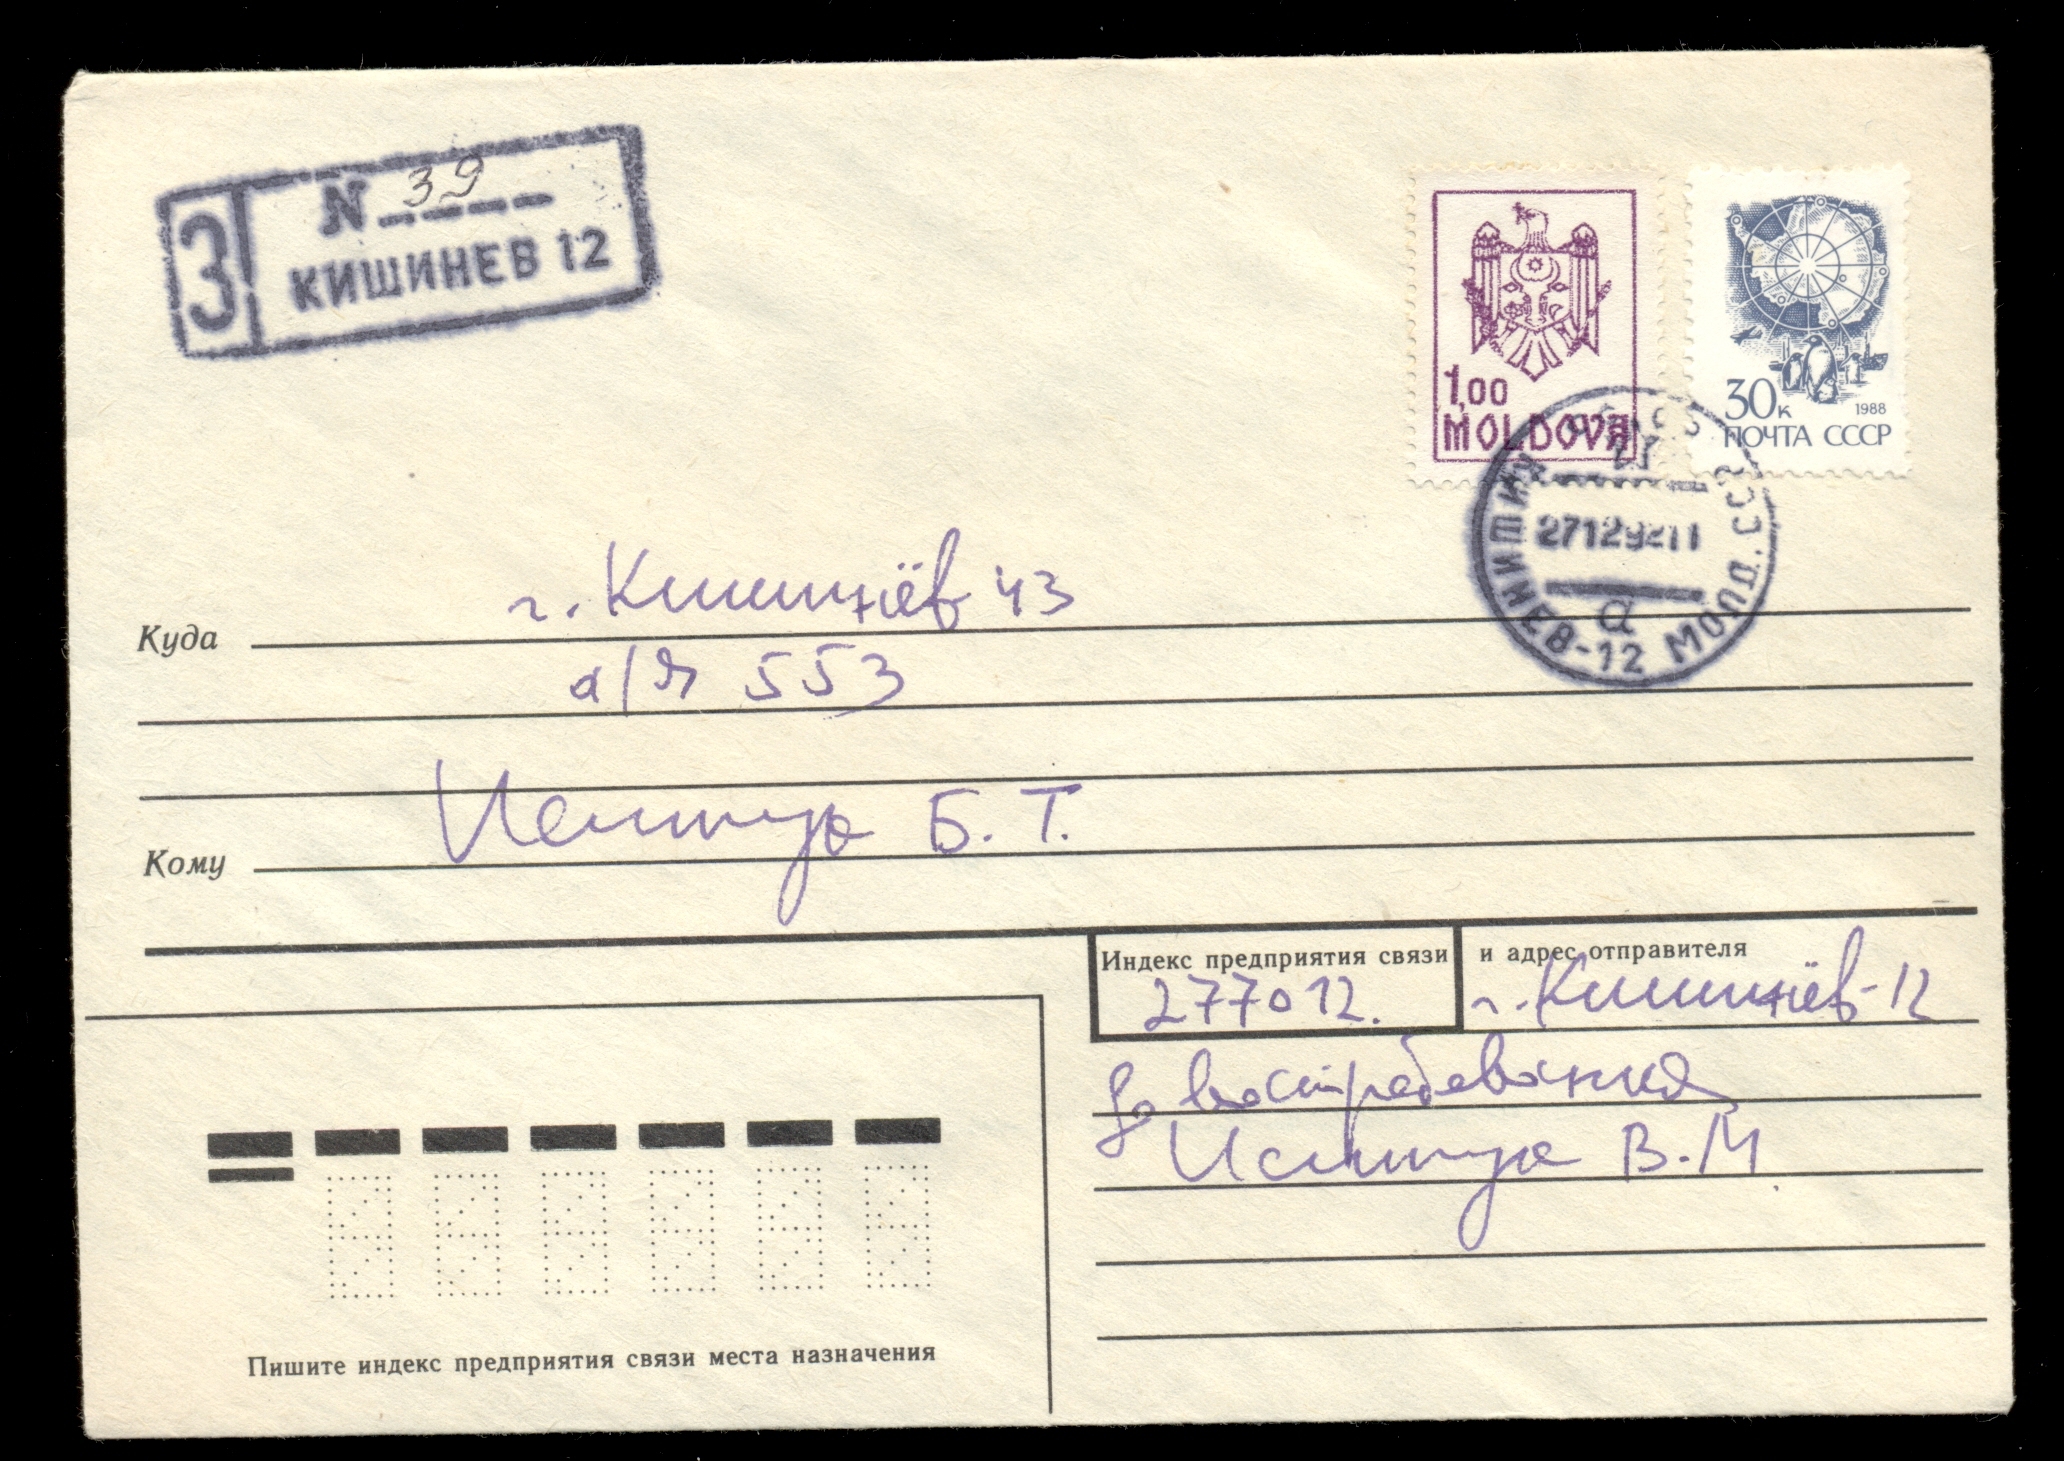 З
N 39
КИШИНЕВ 12
1,00
MOLDOVA
30к 1988
ПОЧТА СССР
271292 11
а
КИШИНЕВ-12 МОЛД.ССР
г. Кишинёв 43
Куда
а/я 553
Кому Б. Т.
Индекс предприятия связи и адрес отправителя
277012. г. Кишинёв-12
до востребования
В. М
Пишите индекс предприятия связи места назначения